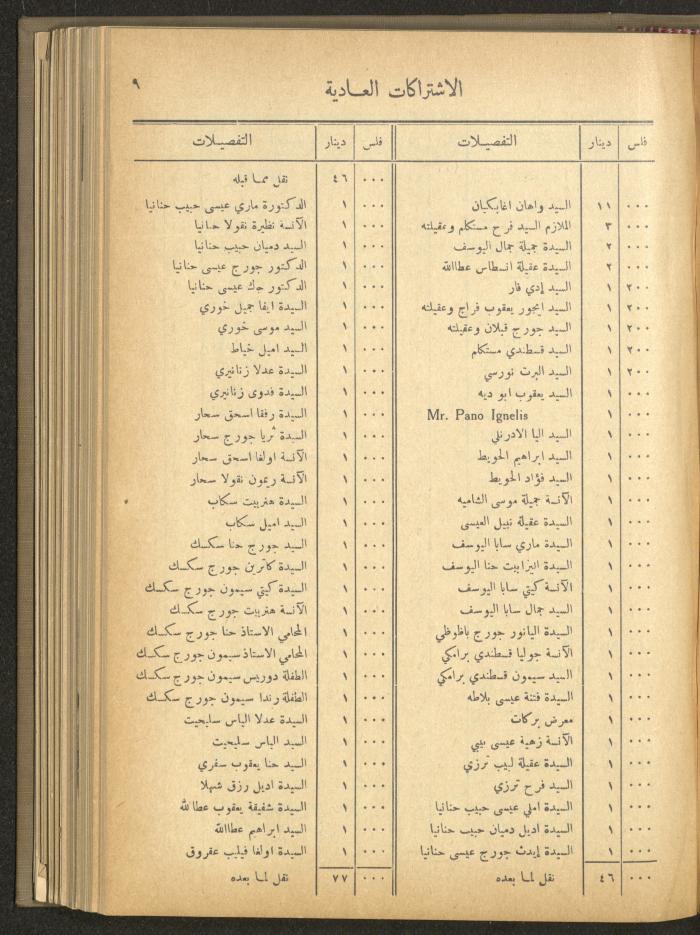 ٩
الاشتراكات العادية
فلس دينار التفصيلات
٠٠٠ ١١ السيد واهان اغابكيان
٠٠٠ ٣ الملازم السيد فرح مستكلم وعقيلته
٠٠٠ ٢ السيدة جميلة جمال اليوسف
٠٠٠ ٢ السيدة عقيلة انسطاس عطاالله
٢٠٠ ١ السيد إدي فار
٢٠٠ ١ السيد ايجور يعقوب فراج وعقيلته
٢٠٠ ١ السيد جورج قبلان وعقيلته
٢٠٠ ١ السيد قسطندي مستكلم
٢٠٠ ١ السيد البرت نورسي
٠٠٠ ١ السيد يعقوب ابو ديه
٠٠٠ ١ Mr. Pano Ignelis
٠٠٠ ١ السيد اليا الادرنلي
٠٠٠ ١ السيد ابراهيم الحويط
٠٠٠ ١ السيد فؤاد الحويط
٠٠٠ ١ الآنسة جميلة موسى الشاميه
٠٠٠ ١ السيدة عقيلة نبيل العيسى
٠٠٠ ١ السيدة ماري سابا اليوسف
٠٠٠ ١ السيدة اليزابيت حنا اليوسف
٠٠٠ ١ الآنسة كيتي سابا اليوسف
٠٠٠ ١ السيد جمال سابا اليوسف
٠٠٠ ١ السيدة اليانور جورج بافلوظي
٠٠٠ ١ الآنسة جوليا قسطندي برامكي
٠٠٠ ١ السيد سيمون قسطندي برامكي
٠٠٠ ١ السيدة فتنة عيسى بلاطه
٠٠٠ ١ معرض بركات
٠٠٠ ١ الآنسة زهية عيسى بيبي
٠٠٠ ١ السيدة عقيلة لبيب ترزي
٠٠٠ ١ السيد فرح ترزي
٠٠٠ ١ السيدة املي عيسى حبيب حنانيا
٠٠٠ ١ السيدة اديل دميان حبيب حنانيا
٠٠٠ ١ السيدة إيدث جورج عيسى حنانيا
٠٠٠ ٤٦ نقل لما بعده
فلس دينار التفصيلات
٠٠٠ ٤٦ نقل مما قبله
٠٠٠ ١ الدكتورة ماري عيسى حبيب حنانيا
٠٠٠ ١ الآنسة نظيرة نقولا حنانيا
٠٠٠ ١ السيد دميان حبيب حنانيا
٠٠٠ ١ الدكتور جورج عيسى حنانيا
٠٠٠ ١ الدكتور جك عيسى حنانيا
٠٠٠ ١ السيدة ايفا جميل خوري
٠٠٠ ١ السيد موسى خوري
٠٠٠ ١ السيد اميل خياط
٠٠٠ ١ السيدة عدلا زنانيري
٠٠٠ ١ السيدة فدوى زنانيري
٠٠٠ ١ السيدة رفقا اسحق سحار
٠٠٠ ١ السيدة ثريا جورج سحار
٠٠٠ ١ الآنسة اولغا اسحق سحار
٠٠٠ ١ الآنسة ريمون نقولا سحار
٠٠٠ ١ السيدة هنرييت سكاب
٠٠٠ ١ السيد اميل سكاب
٠٠٠ ١ السيد جورج حنا سكسك
٠٠٠ ١ السيدة كاترين جورج سكسك
٠٠٠ ١ السيدة كيتي سيمون جورج سكسك
٠٠٠ ١ الآنسة هنرييت جورج سكسك
٠٠٠ ١ المحامي الاستاذ حنا جورج سكسك
٠٠٠ ١ المحامي الاستاذ سيمون جورج سكسك
٠٠٠ ١ الطفلة دوريس سيمون جورج سكسك
٠٠٠ ١ الطفلة رندا سيمون جورج سكسك
٠٠٠ ١ السيدة عدلا الياس سليحيت
٠٠٠ ١ السيد الياس سليحيت
٠٠٠ ١ السيد حنا يعقوب سفري
٠٠٠ ١ السيدة اديل رزق شهلا
٠٠٠ ١ السيدة شفيقة يعقوب عطاالله
٠٠٠ ١ السيد ابراهيم عطاالله
٠٠٠ ١ السيدة اولغا فيليب عقروق
٠٠٠ ٧٧ نقل لما بعده